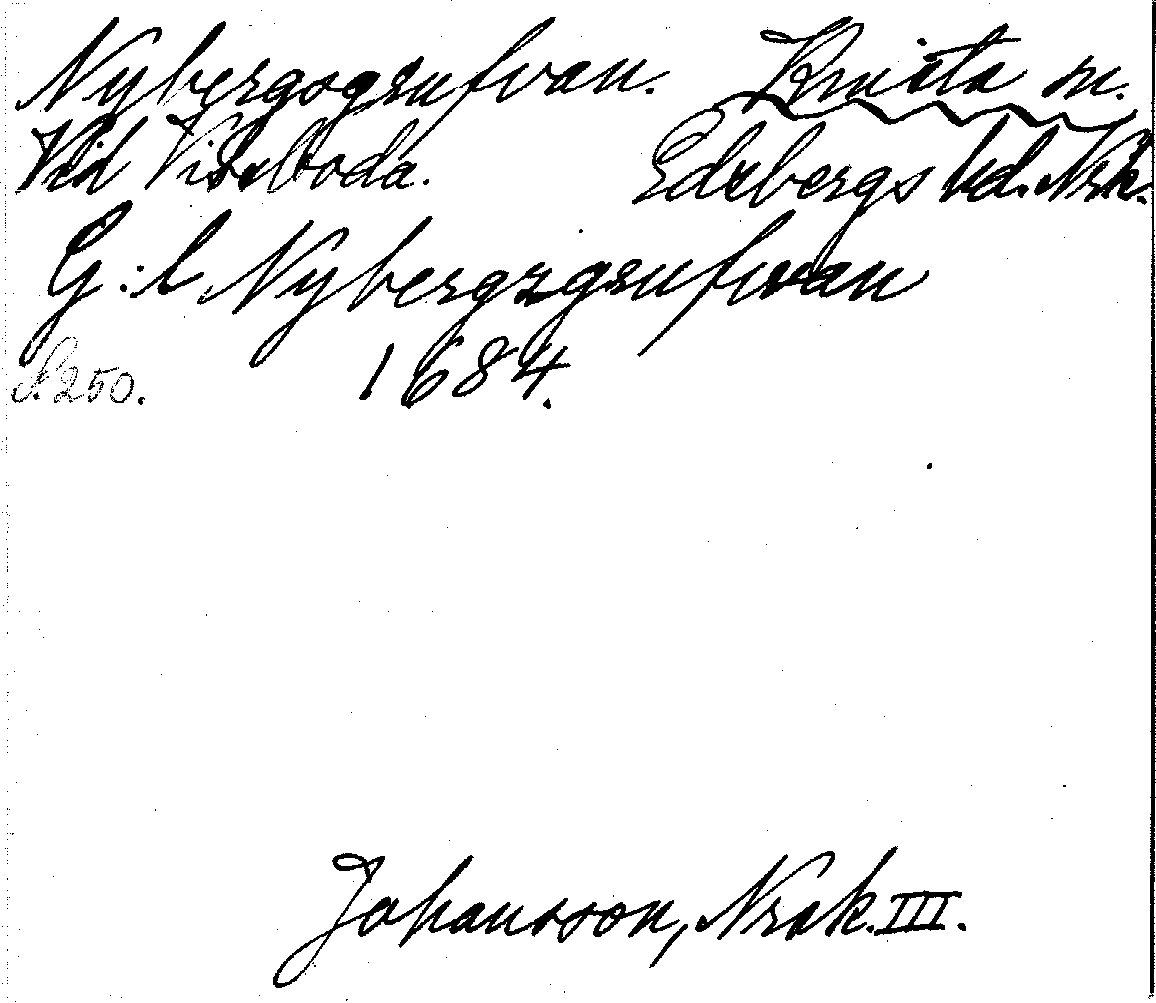 Nybergsgrufvan. Knista sn.
Vid Viselboda. Edsbergs hd. Nrk.
G:l Nybergsgrufwan
S. 250. 1684.
Johansson, Nrak. III.